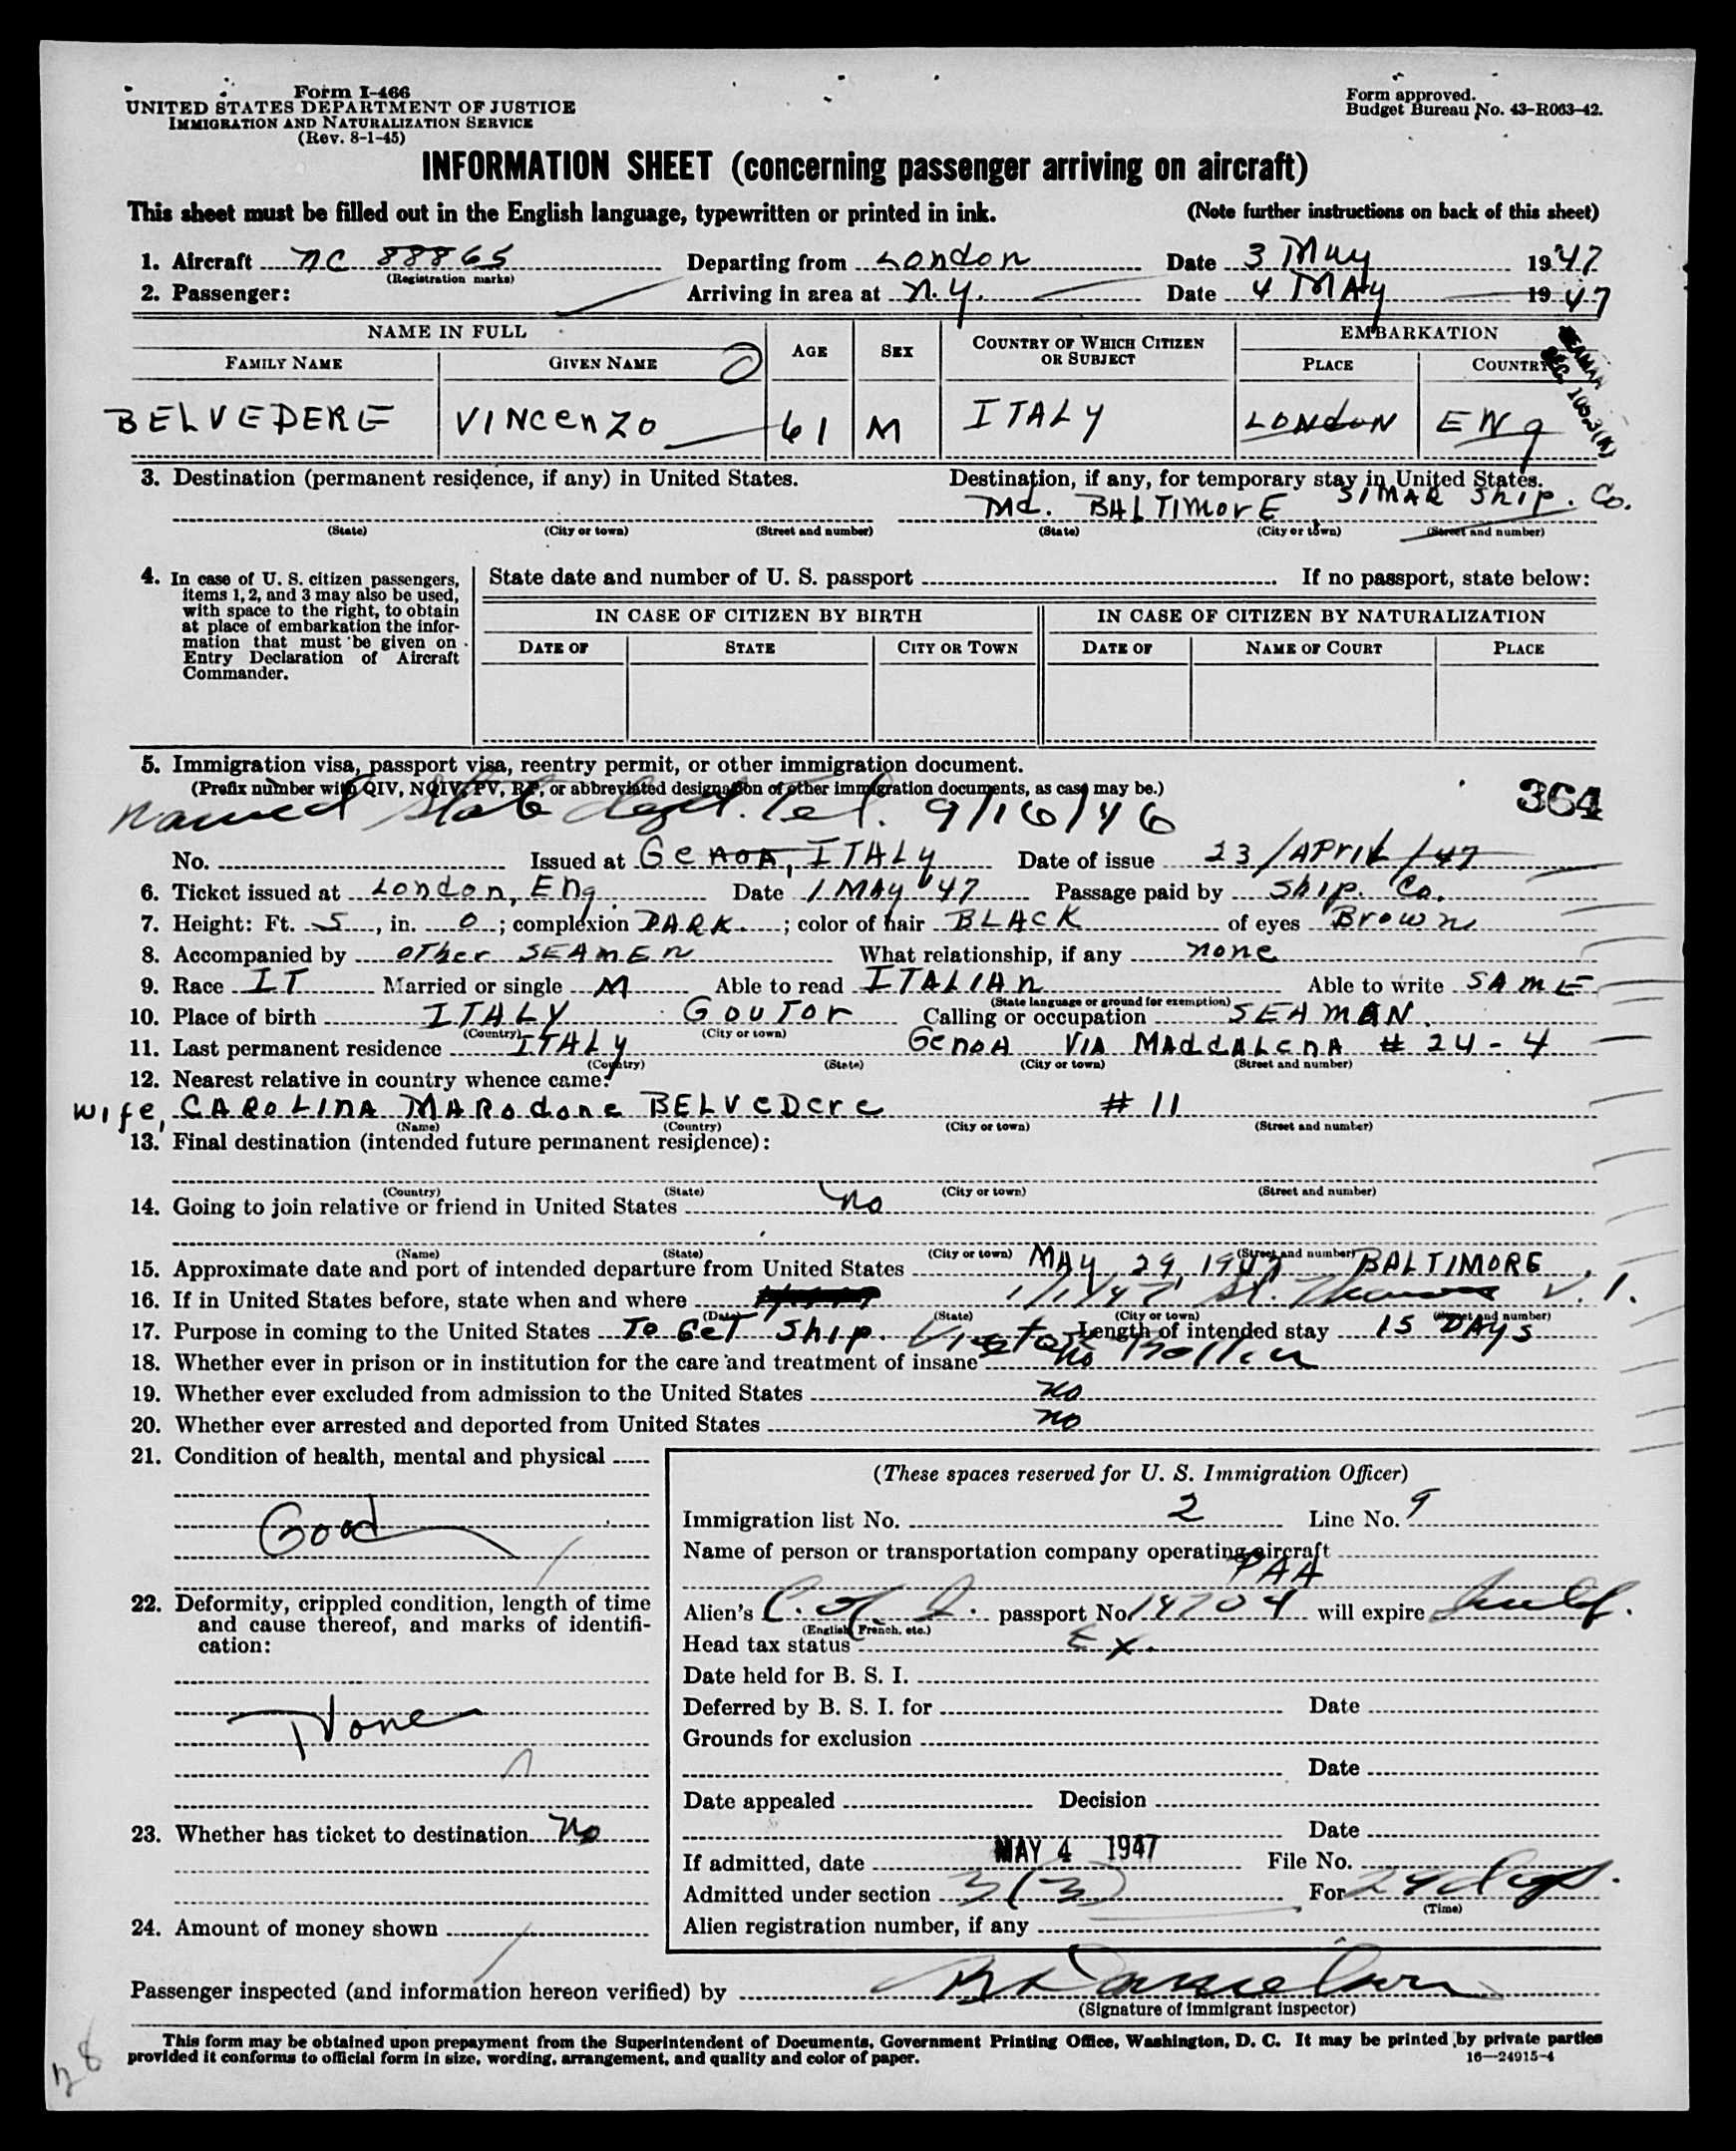 Form I-466
UNITED STATES DEPARTMENT OF JUSTICE
IMMIGRATION AND NATURALIZATION SERVICE
(Rev. 8-1-45)
Form approved.
Budget Bureau No. 43-R063-42.
INFORMATION SHEET (concerning passenger arriving on aircraft)
This sheet must be filled out in the English language, typewritten or printed in ink. (Note further instructions on back of this sheet)
1. Aircraft NC 88865 Departing from London Date 3 May 1947
(Registration marks)
2. Passenger: Arriving in area at N.Y. Date 4 MAy 1947
NAME IN FULL AGE SEX COUNTRY OF WHICH CITIZEN OR SUBJECT EMBARKATION
FAMILY NAME GIVEN NAME PLACE COUNTRY
BELVEDERE VINCENZO 61 M ITALY LONDON ENg
3. Destination (permanent residence, if any) in United States. Destination, if any, for temporary stay in United States.
Md. BALTIMORE SIMAR Ship. Co.
(State) (City or town) (Street and number) (State) (City or town) (Street and number)
4. In case of U. S. citizen passengers, items 1, 2, and 3 may also be used, with space to the right, to obtain at place of embarkation the information that must be given on Entry Declaration of Aircraft Commander.
State date and number of U. S. passport If no passport, state below:
IN CASE OF CITIZEN BY BIRTH IN CASE OF CITIZEN BY NATURALIZATION
DATE OF STATE CITY OR TOWN DATE OF NAME OF COURT PLACE
5. Immigration visa, passport visa, reentry permit, or other immigration document.
(Prefix number with QIV, NQIV, PV, RP, or abbreviated designation of other immigration documents, as case may be.)
364
named State dept. Tel. 9/16/46
No. Issued at GENOA, ITALY Date of issue 23/APRIL/47
6. Ticket issued at London, Eng. Date 1 MAY '47 Passage paid by Ship. Co.
7. Height: Ft. 5, in. 0; complexion DARK.; color of hair BLACK of eyes Brown
8. Accompanied by other SEAMEN What relationship, if any none
9. Race IT Married or single M Able to read ITALIAN Able to write SAME
(State language or ground for exemption)
10. Place of birth ITALY GOUTOR Calling or occupation SEAMAN.
(Country) (City or town)
11. Last permanent residence ITALY GENOA VIA MADDALENA # 24-4
(Country) (State) (City or town) (Street and number)
12. Nearest relative in country whence came:
wife, CAROLINA MARODONE BELVEDERE # 11
(Name) (Country) (City or town) (Street and number)
13. Final destination (intended future permanent residence):
(Country) (State) (City or town) (Street and number)
14. Going to join relative or friend in United States no
(Name) (State) (City or town) (Street and number)
15. Approximate date and port of intended departure from United States MAY 29, 1947 BALTIMORE
16. If in United States before, state when and where 1/1/47 St. Thomas V.I.
(Date) (State) (City or town) (Street and number)
17. Purpose in coming to the United States To GET Ship. Length of intended stay 15 DAYS
18. Whether ever in prison or in institution for the care and treatment of insane no
19. Whether ever excluded from admission to the United States no
20. Whether ever arrested and deported from United States no
21. Condition of health, mental and physical
Good
22. Deformity, crippled condition, length of time and cause thereof, and marks of identification:
None
23. Whether has ticket to destination No
24. Amount of money shown
(These spaces reserved for U. S. Immigration Officer)
Immigration list No. 2 Line No. 9
Name of person or transportation company operating aircraft
PAA
Alien's C. of I. passport No. 14704 will expire
(English, French, etc.)
Head tax status Ex.
Date held for B. S. I.
Deferred by B. S. I. for Date
Grounds for exclusion
Date
Date appealed Decision
Date
If admitted, date MAY 4 1947 File No.
Admitted under section 3(3) For 29 days.
(Time)
Alien registration number, if any
Passenger inspected (and information hereon verified) by
(Signature of immigrant inspector)
This form may be obtained upon prepayment from the Superintendent of Documents, Government Printing Office, Washington, D. C. It may be printed by private parties
provided it conforms to official form in size, wording, arrangement, and quality and color of paper. 16—24915-4